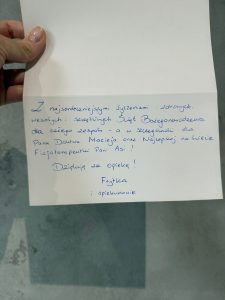 Z najserdeczniejszymi życzeniami zdrowych,
wesołych i szczęśliwych Świąt Bożego Narodzenia
dla całego zespołu - a w szczególności dla
Pana Doktora Macieja oraz Najlepszej na świecie
Fizjoterapeutki Pani Asi!
Dziękuję za opiekę!
Frytka
i opiekunowie